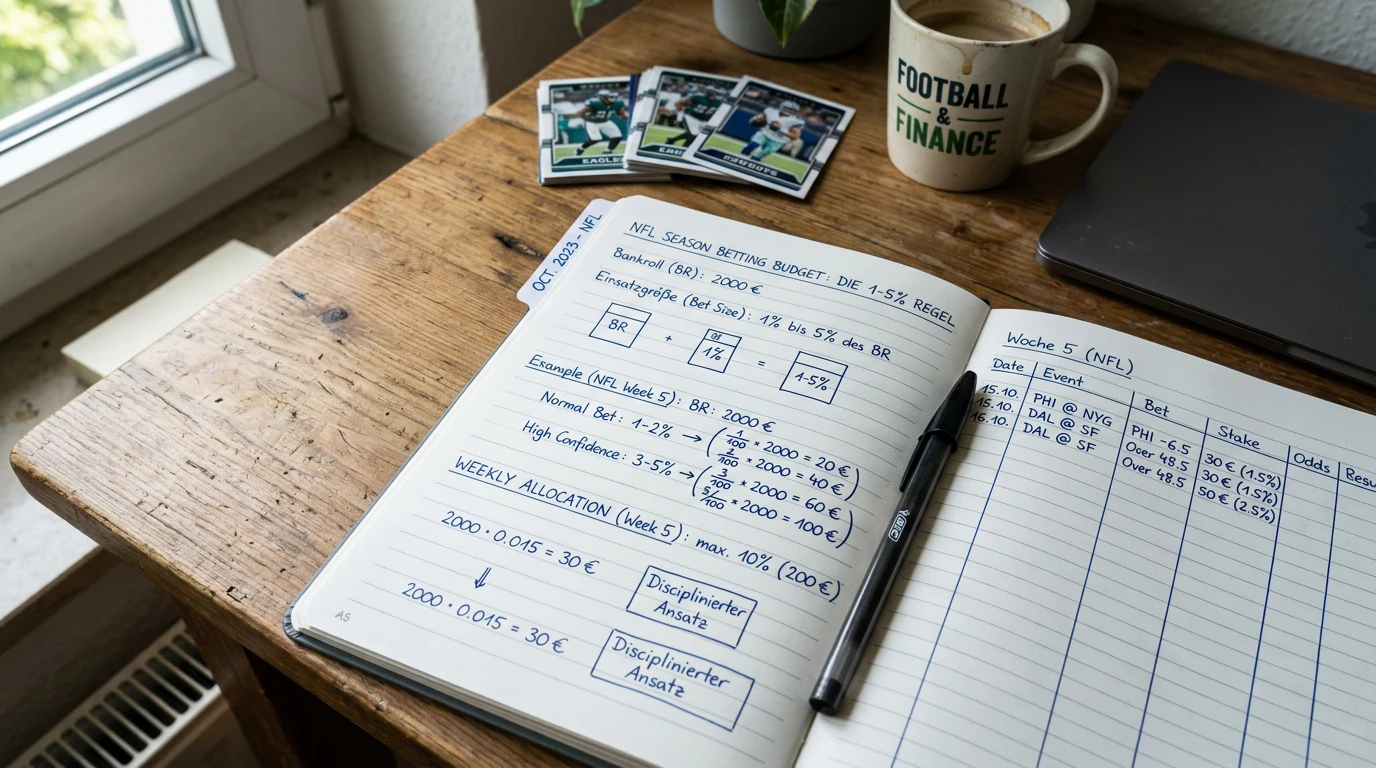 FOOTBALL
&
FINANCE
EAGLES
COWBOYS
OCT. 2023 - NFL
NFL SEASON BETTING BUDGET: DIE 1-5% REGEL
Bankroll (BR): 2000 €
Einsatzgröße (Bet Size): 1% bis 5% des BR
BR + 1% = 1-5%
Example (NFL Week 5): BR: 2000 €
Normal Bet: 1-2% → (1/100 * 2000 = 20 €
2/100 * 2000 = 40 €)
High Confidence: 3-5% → (3/100 * 2000 = 60 €
5/100 * 2000 = 100 €)
WEEKLY ALLOCATION (Week 5): max. 10% (200 €)
2000 · 0.015 = 30 €
⇓
2000 · 0.015 = 30 €
Disciplinierter
Ansatz
Disciplinierter
Ansatz
A5
Woche 5 (NFL)
Date Event Bet Stake Odds Resu
15.10. PHI @ NYG PHI -6.5 30 € (1.5%)
15.10. DAL @ SF Over 48.5 30 € (1.5%)
16.10. DAL @ SF Over 48.5 50 € (2.5%)